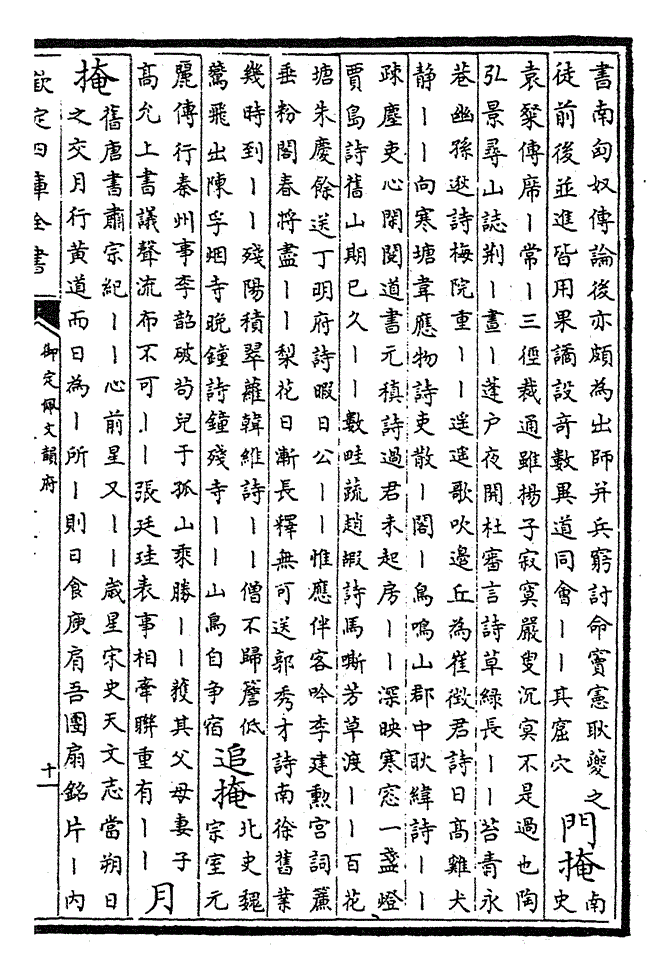 書南匈奴傳論後亦頗為出師并兵窮討命竇憲耿夔之
徒前後並進皆用果譎設奇數異道同會丨丨其窟穴
門掩
南
史
袁粲傳席丨常丨三徑裁通雖揚子寂寞嚴叟沉冥不是過也陶
弘景尋山誌荆丨晝丨蓬户夜開杜審言詩草緑長丨丨苔青永
巷幽孫逖詩梅院重丨丨遥遥歌吹邊丘為崔徵君詩日髙雞犬
静丨丨向寒塘韋應物詩吏散丨閣丨鳥鳴山郡中耿緯詩丨丨
疎塵吏心閑閱道書元稹詩過君未起房丨丨深映寒窓一盞燈
賈島詩舊山期已久丨丨數畦蔬趙嘏詩馬嘶芳草渡丨丨百花
塘朱慶餘送丁明府詩暇日公丨丨惟應伴客吟李建勲宫詞簾
垂粉閣春將盡丨丨梨花日漸長釋無可送郭秀才詩南徐舊業
幾時到丨丨殘陽積翠蘿韓維詩丨丨僧不歸簷低
鶯飛出陳孚烟寺晚鐘詩鐘殘寺丨丨山鳥自争宿
追掩
北史魏
宗室元
麗傳行秦州事李韶破苟兒于孤山乘勝丨丨獲其父母妻子
髙允上書議聲流布不可丨丨張廷珪表事相牽聯重有丨丨
月
掩
舊唐書肅宗紀丨丨心前星又丨丨歲星宋史天文志當朔日
之交月行黄道而日為丨所丨則日食庾肩吾團扇銘片丨内
欽定四庫全書
御定佩文韻府
十一